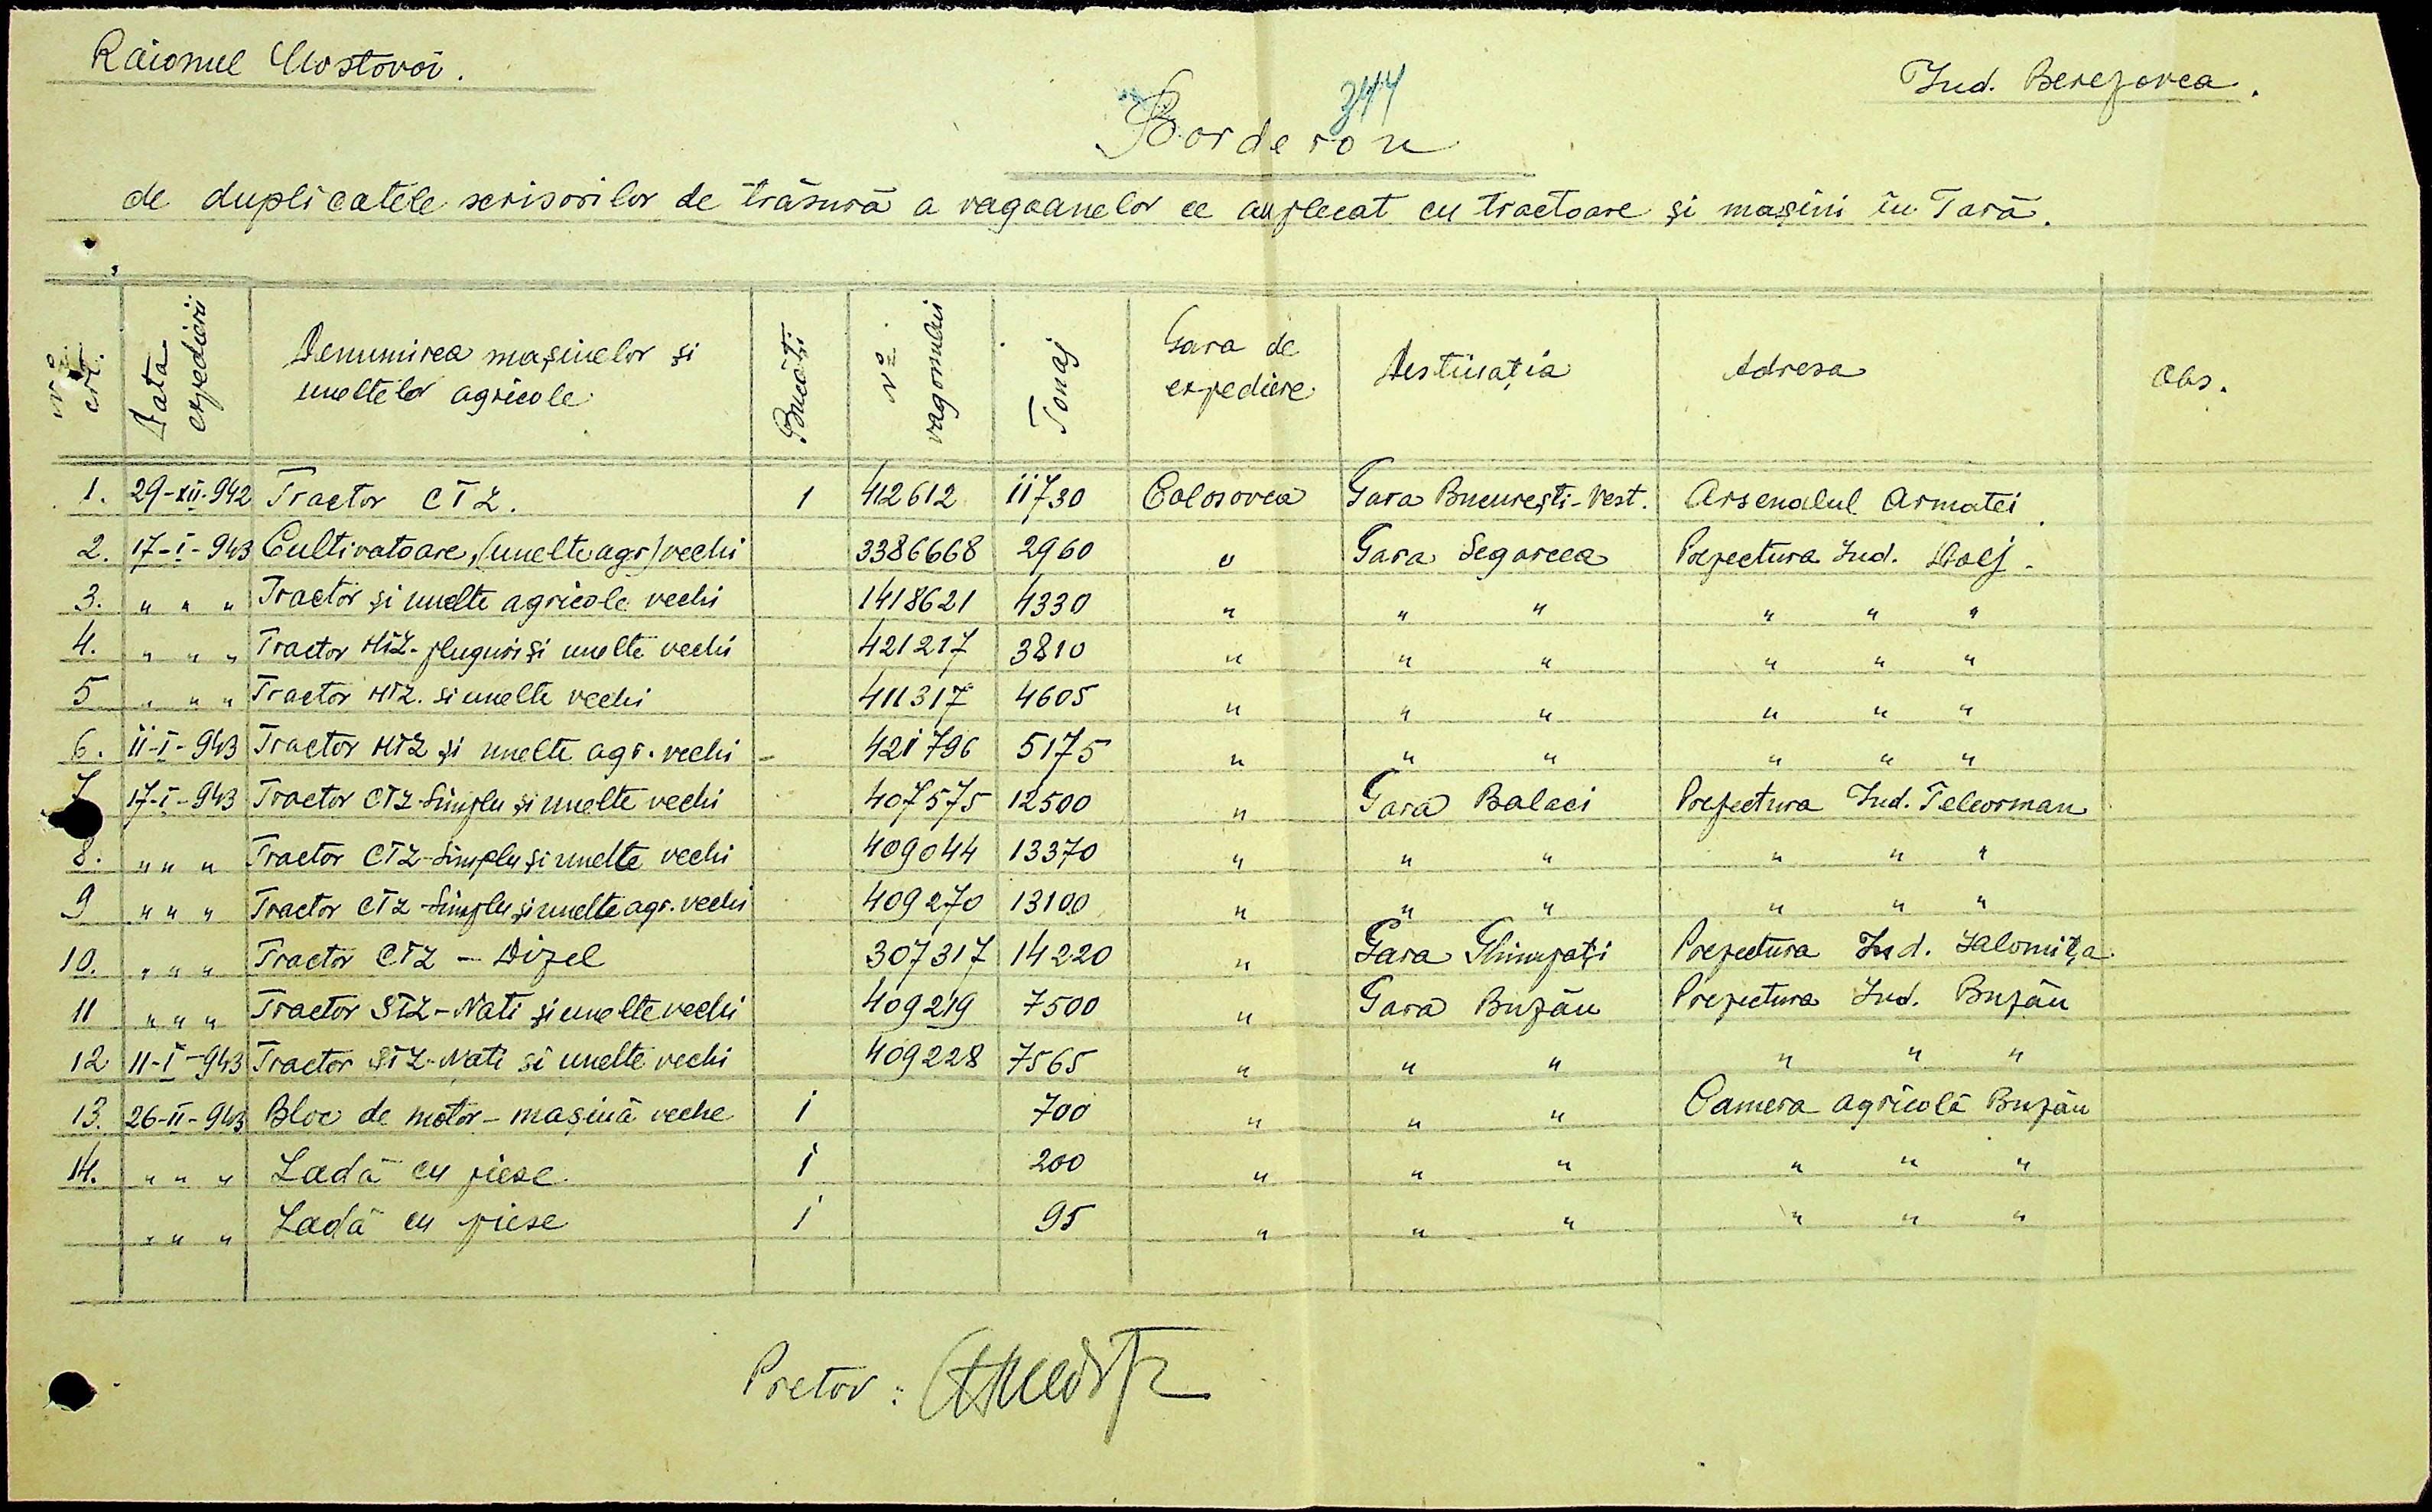 Raionul Mostovoi.
Jud. Berezovca.
344
Borderou
de duplicatele scrisorilor de trăsură a vagoanelor ce au plecat cu tractoare și mașini în Țară.
No crt. | Data expedierii | Denumirea mașinelor și uneltelor agricole | Bucăți | No vagonului | Tonaj | Gara de expediere | Destinația | Adresa | Obs.
1. 29-XII-942 Tractor CTZ. 1 412612 11730 Colosovca Gara București-Vest. Arsenalul Armatei
2. 17-I-943 Cultivatoare, (unelte agr) vechi 3386668 2960 " Gara Segarcea Prefectura Jud. Dolj.
3. " " " Tractor și unelte agricole vechi 1418621 4330 " " " " " "
4. " " " Tractor HTZ-pluguri și unelte vechi 421217 3810 " " " " " "
5 " " " Tractor HTZ. și unelte vechi 411317 4605 " " " " " "
6. 11-I-943 Tractor HTZ și unelte agr. vechi - 421796 5175 " " " " " "
7 17-I-943 Tractor CTZ-Simplu și unelte vechi 407575 12500 " Gara Balaci Prefectura Jud. Teleorman
8. " " " Tractor CTZ-Simplu și unelte vechi 409044 13370 " " " " " "
9 " " " Tractor CTZ-Simplu și unelte agr. vechi 409270 13100 " " " " " "
10. " " " Tractor CTZ - Dizel 307317 14220 " Gara Ghimpați Prefectura Jud. Ialomița
11 " " " Tractor STZ-Nati și unelte vechi 409219 7500 " Gara Buzău Prefectura Jud. Buzău
12 11-I-943 Tractor STZ-Nati și unelte vechi 409228 7565 " " " " " "
13. 26-II-943 Bloc de motor - mașină veche 1 700 " " " Camera agricolă Buzău
14. " " " Ladă cu piese 1 200 " " " " " "
" " " Ladă cu piese 1 95 " " " " " "
Pretor: